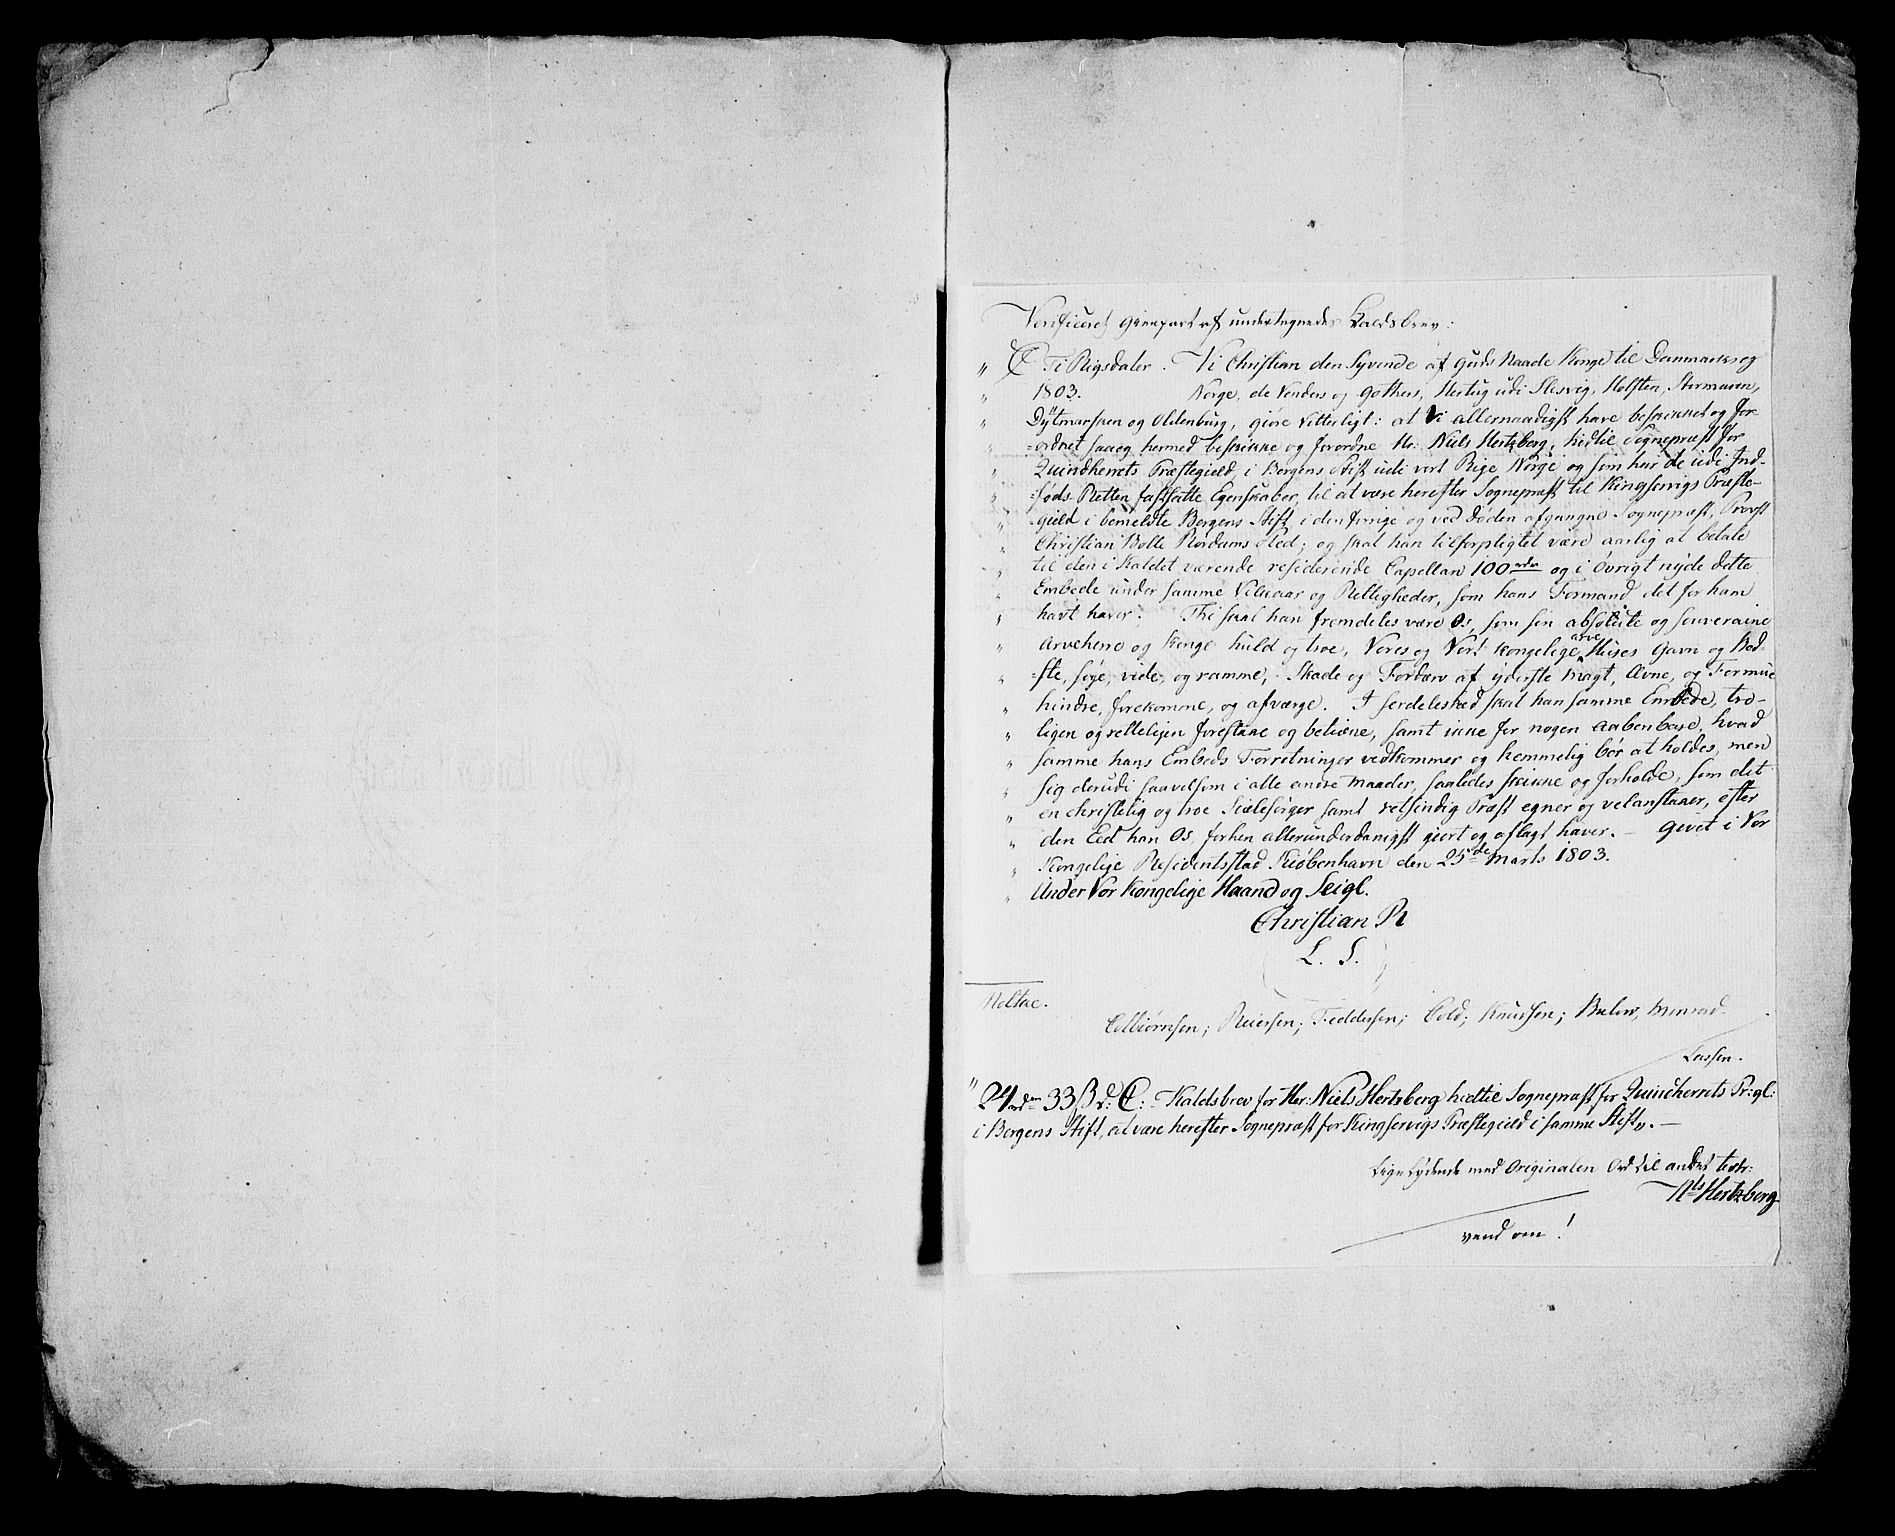 Verificeret Gienpart af undertegnedes Kaldsbrev:
" C Ti Rigsdaler. Vi Christian den Syvende af Guds Naade Konge til Danmark og
" 1803. Norge, de Venders og Gothers, Hertug udi Slesvig, Holsten, Stormarn,
" Dytmarsken og Oldenburg, giøre Vitterligt: at Vi allernaadigst have beskikket og for
" =ordnet saa og hermed beskikke og forordne Hr: Niels Hertzberg, hidtil Sognepræst for
" Quindherrets Præstegield, i Bergens Stift udi vort Rige Norge og som har de udi Ind-
" =føds Retten fastsatte Egenskaber, til at være herefter Sognepræst til Kingservigs Præste-
" gield i bemeldte Bergens Stift, i den forrige og ved Døden afgangne Sognepræst, Provst
" Christian Bolle Rördams Sted; og skal han tilforpligtet være aarlig at betale
" til den i Kaldet værende residerende Capellan 100 rdr og i Övrigt nyde dette
" Embede under samme Vilkaar og Rettigheder, som hans Formand det for ham
" havt haver. Thi skal han fremdeles være Os, som sin absolute og souveraine
" Arveherre og Konge huld og troe, Vores og Vort Kongelige arve Huses Gavn og Bed-
" =ste, søge, vide, og ramme, Skade og Fordærv af yderste Magt, Ævne, og Formue
" hindre, forekomme, og afværge. I serdeleshed skal han samme Embede, tro-
" ligen og retteligen forestaae og betiene, samt ikke for nogen aabenbare, hvad
" samme hans Embeds Forretninger vedkommer og hemmelig bör at holdes, men
" sig derudi saavelsom i alle andre Maader, saaledes skikke og forholde, som det
" en christelig og troe Siælesörger samt retsindig Præst egner og velanstaaer, efter
" den Eed han Os forhen allerunderdanigst giort og aflagt haver. – Givet i Vor
" Kongelige Residentsstad Kiøbenhavn den 25de Marts 1803.
" Under Vor Kongelige Haand og Seigl.
Christian R
L. S.
Moltke.
Colbiørnsen; Reiersen; Feddersen; Cold; Knudsen; Bulow, Monrad.
Lassen.
" 24 rdr 33 ß d: C: Kaldsbrev for Her: Niels Hertzberg hidtil Sognepræst for Quindherrets Pr:gl:
i Bergens Stift, at være herefter Sognepræst for Kingservigs Præstegield i samme Stift,,. –
Ligelydende med Originalen Ord til andet testr:
Nls Hertzberg
vend om!